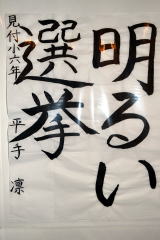 明るい
選挙
見付小六年 平手 凛